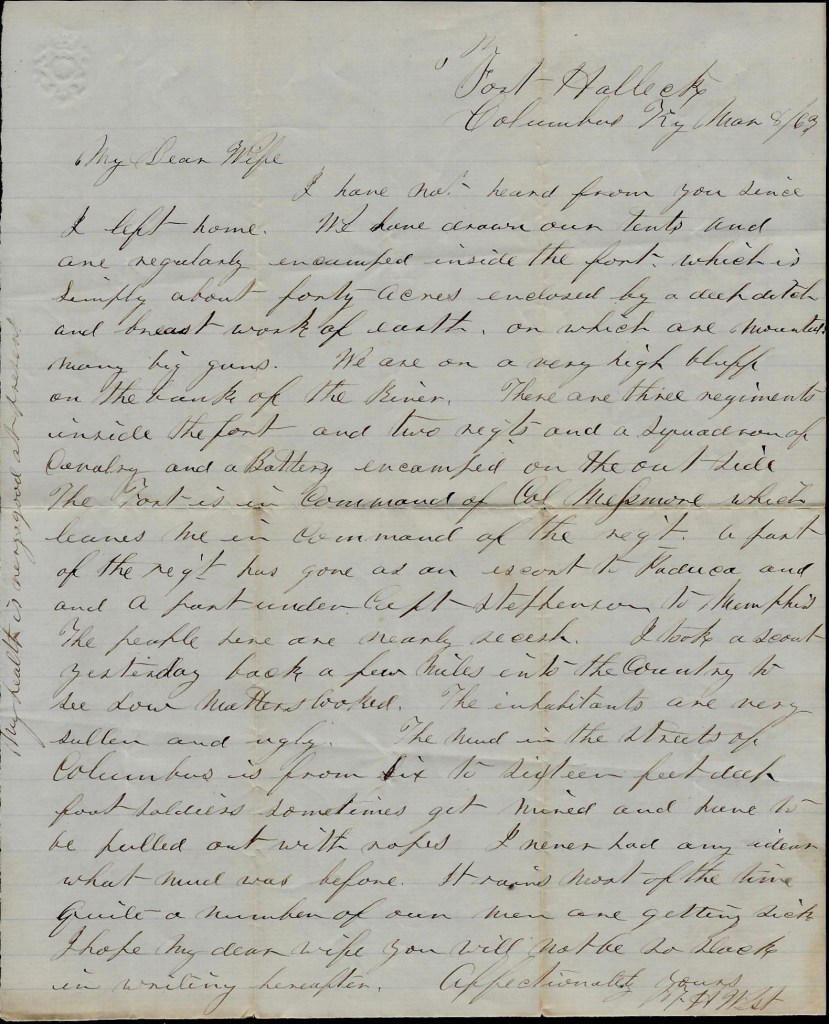 Fort Halleck
Columbus Ky Mar 8/63
My Dear Wife
I have not heard from you since
I left home. We have drawn our tents and
are regularly encamped inside the fort. which is
simply about forty acres enclosed by a deep ditch
and breast work of earth, on which are mounted
many big guns. We are on a very high bluff
on the bank of the River. There are three regiments
inside the fort and two regts and a squadron of
Cavalry and a Battery encamped on the out side
The Fort is in command of Col. Messmore which
leaves me in command of the regt. a part
of the regt has gone as an escort to Paduca and
and a part under Capt Stephenson to Memphis
The people here are nearly secesh. I took a scout
yesterday back a few miles into the Country to
see how matters looked. The inhabitants are very
sullen and ugly. The mud in the streets of
Columbus is from six to sixteen feet deep
foot soldiers sometimes get mired and have to
be pulled out with ropes I never had any idear
what mud was before. It rains most of the time
Quite a number of our men are getting sick
I hope my dear wife you will not be so slack
in writing hereafter. Affectionately yours
F H West
My health is very good at present